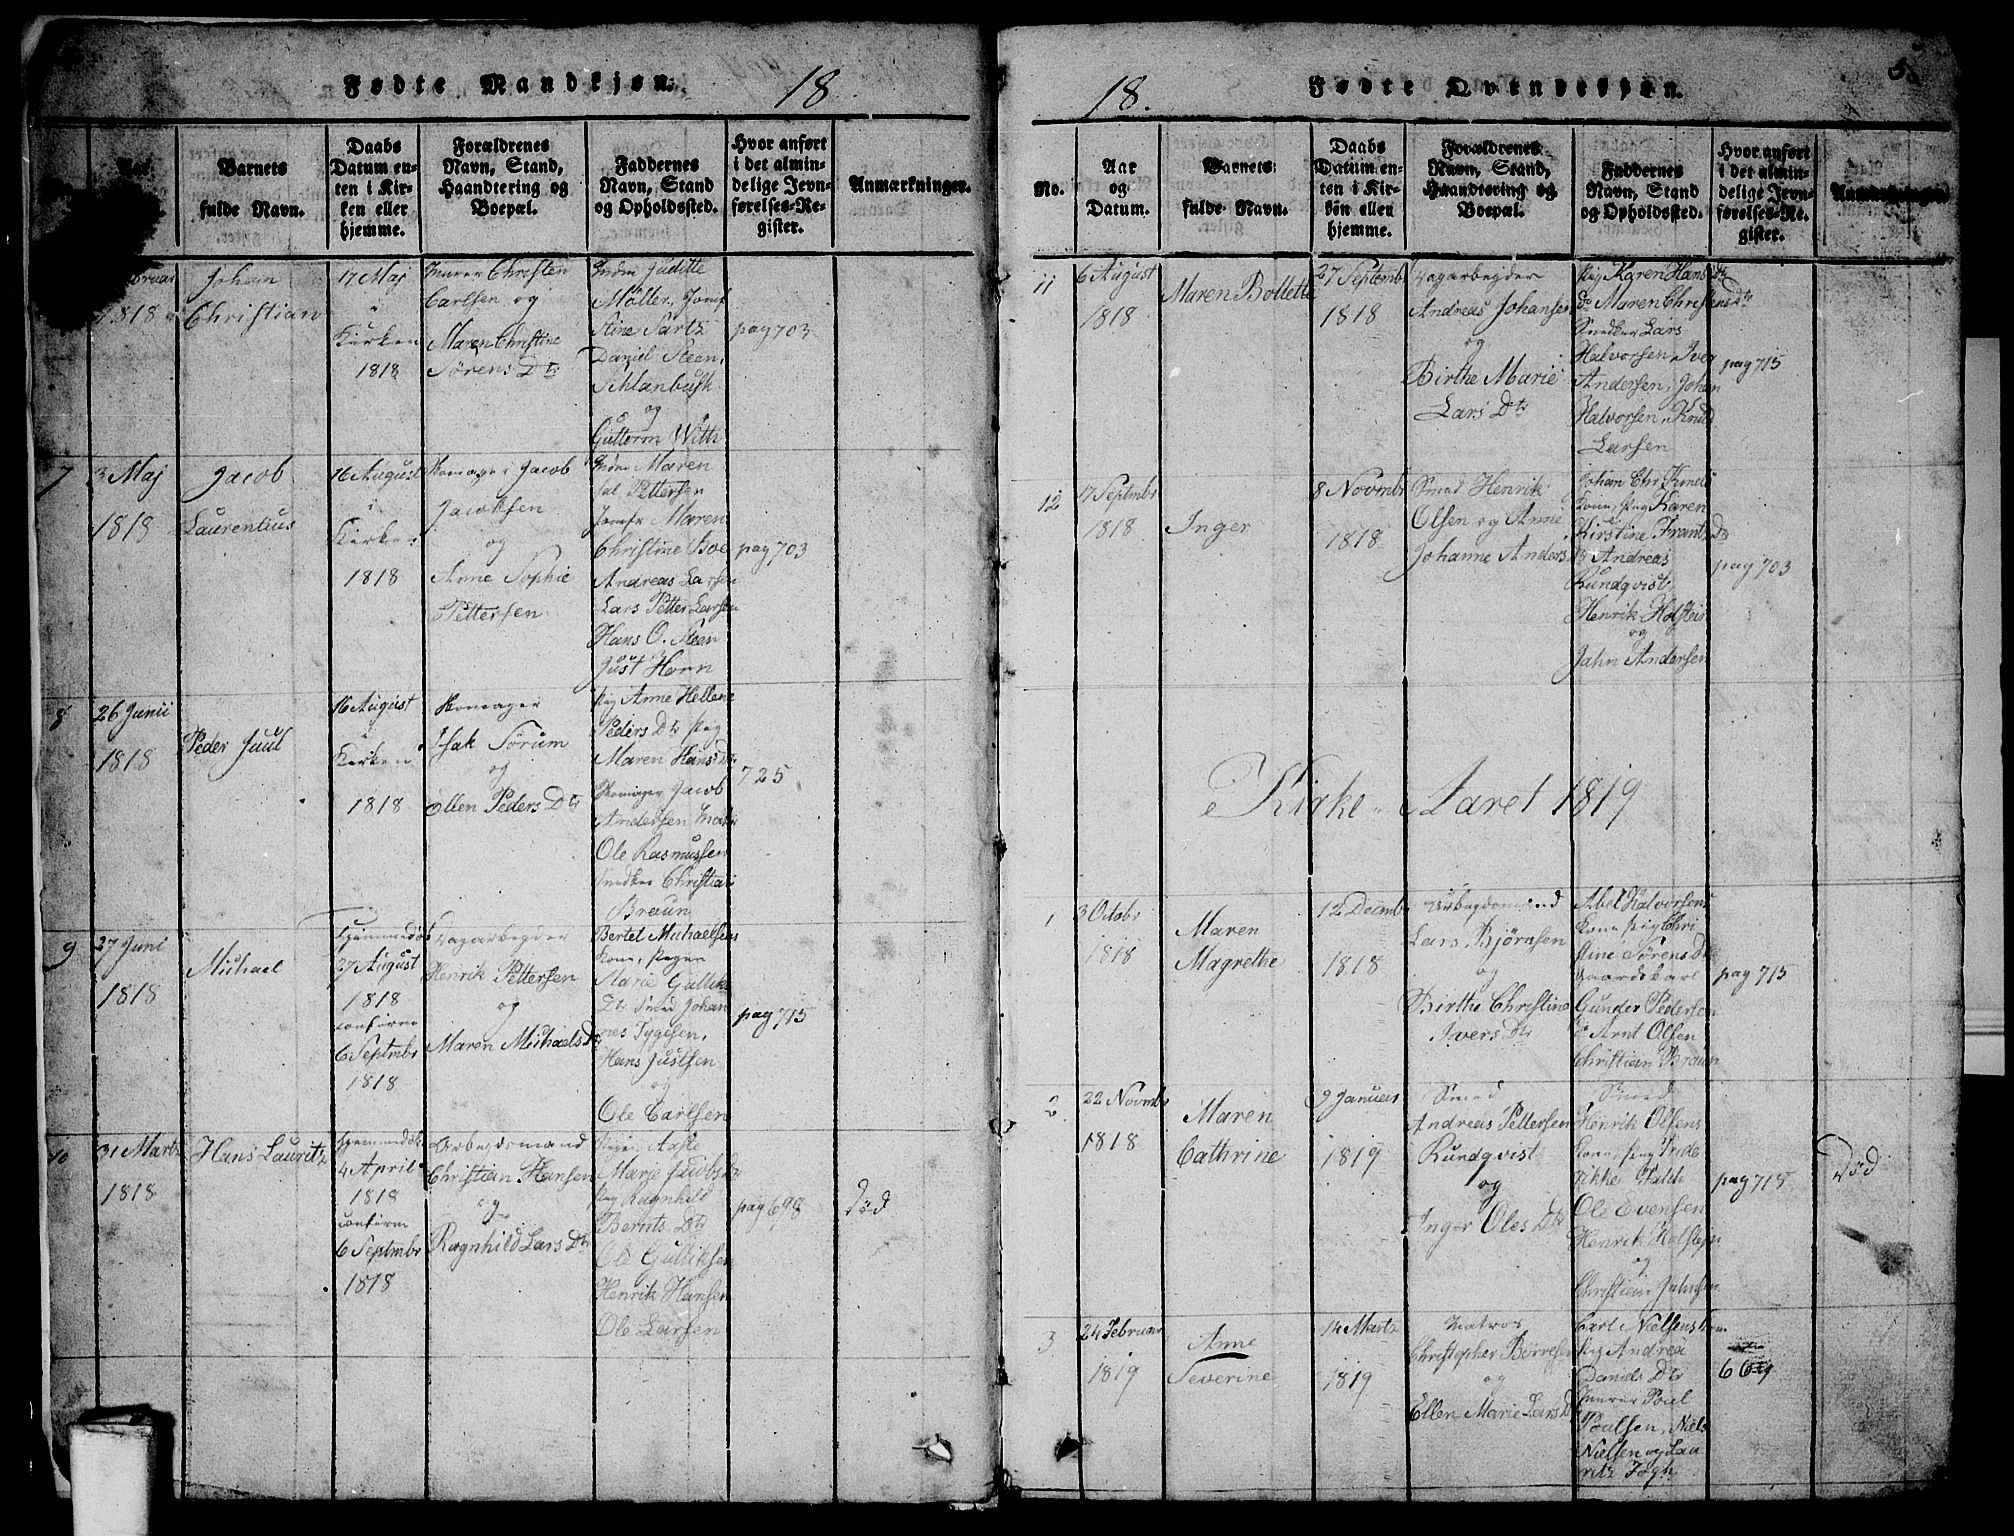 Fødte Mandkjøn.
18
Barnets
fulde Navn.
Daabs
Datum en-
ten i Kir-
ken eller
hjemme.
Forældrenes
Navn, Stand,
Haandtering og
Boepæl.
Faddernes
Navn, Stand
og Opholdssted.
Hvor anført
i det almin-
delige Jevn-
førelses-Re-
gister.
Anmærkninger.
1818
Johan
Christian
17 Maj
Kirken
1818
Christen
Carlsen og
Maren Christine
Sørens Dtr
Juditte
Möller, Jomf
Stine Sartz
Daniel Steen,
Schlanbusk
og
Guttorm With
pag 703
7
3 Maj
1818
Jacob
Laurentius
16 August
i
Kirken
1818
Jacob
Jacobsen
og
Anne Sophie
Pettersen
Maren
Pettersen
Jomfr Maren
Christine Boe
Andreas Larsen
Lars Petter Larsen
Hans O. Steen
Just Horn
pag 703
8
26 Junii
1818
Peder Juul
16 August
i
Kirken
1818
Isak Sörum
og
Ellen Peders Dtr
Pig Anne Hellene
Peders Dtr Pig
Maren Hans Dtr
Jacob
Andersen
Ole Rasmussen
Snedker Christian
Braun
725
9
27 Juni
1818
Michael
Hjemmedøbt
27 August
1818
confirm
6 Septmbr
1818
Dagarbeyder
Henrik Pettersen
og
Maren Michaels Dtr
Bertel Michaelsens
Kone, Pigen
Marie Gullik
Dtr Smed Johan
nes Tygesen,
Hans Justsen
og
Ole Carlsen
pag 715
10
31 Martz
1818
Hans Lauritz
Hjemmedøbt
4 April
1818
confirm
6 Septmbr
1818
Arbeydsmand
Christian Hansen
og
Ragnhild Lars Dtr
Pigen Aasle
Marie Jacobs Dtr
Pig Ragnhild
Bernts Dtr
Ole Gulliksen
Henrik Hansen
Ole Larsen
pag 698
Død
18.
Fødte Qvindekjøn.
No.
Aar
og
Datum.
Barnets
fulde Navn.
Daabs
Datum en-
ten i Kir-
ken eller
hjemme.
Forældrenes
Navn, Stand,
Haandtering og
Boepæl.
Faddernes
Navn, Stand
og Opholdssted.
Hvor anført
i det almin-
delige Jevn-
førelses-Re-
gister.
Anmærkninger.
11
6 August
1818
Maren Bollette
27 Septembr
1818
Dagarbeyder
Andreas Johansen
og
Birthe Marie
Lars Dtr
Pig Karen Hans Dtr
Do Maren Christens Dtr
Snedker Lars
Halvorsen, Iver
Andersen, Johan
Halvorsen, Knud
Larsen
pag 715
12
17 Septmbr
1818
Inger
8 Novmbr
1818
Smed Henrik
Olsen og Anne
Johanne Anders Dtr
Johan Chr
Kone, Pig Karen
Kirstine Frants Dtr
Andreas
Rundqvist
Henrik Holstein
og
Jahn Andersen
pag 703
Kirke Aaret 1819
1
3 Octobr
1818
Maren
Magrethe
12 Decmbr
1818
Arbeydsmand
Lars Bjørnsen
og
Birthe Christine
Ivers Dtr
Abel Halvorsens
Kone Pig Chri
stine Sørens Dtr
Gaardskarl
Gunder Pedersen
Do Arnt Olsen
Christian Braun
pag 715
2
22 Novmbr
1818
Maren
Cathrine
9 Januari
1819
Smed
Andreas Pettersen
Rundqvist
og
Inger Oles Dtr
Smed
Henrik Olsens
Kone, Pig Fride
rikke Falch
Ole Evensen
Henrik Holstein
og
Christian Jahnsen
pag 715
Død
3
24 Februar
1819
Anne
Severine
14 Martz
1819
Matros
Christopher Börresen
og
Ellen Marie Lars Dtr
Carl Nielsens Kone
Pig Andrea
Daniels Dtr
Poul
Poulsen, Niels
Nielsen og Lau
ritz Fogh
669